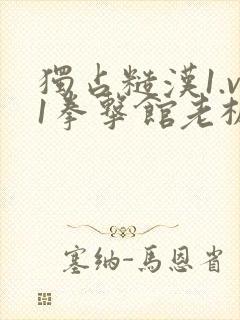 獨占糙漢1.v
1拳擊館老板
塞納-馬恩省